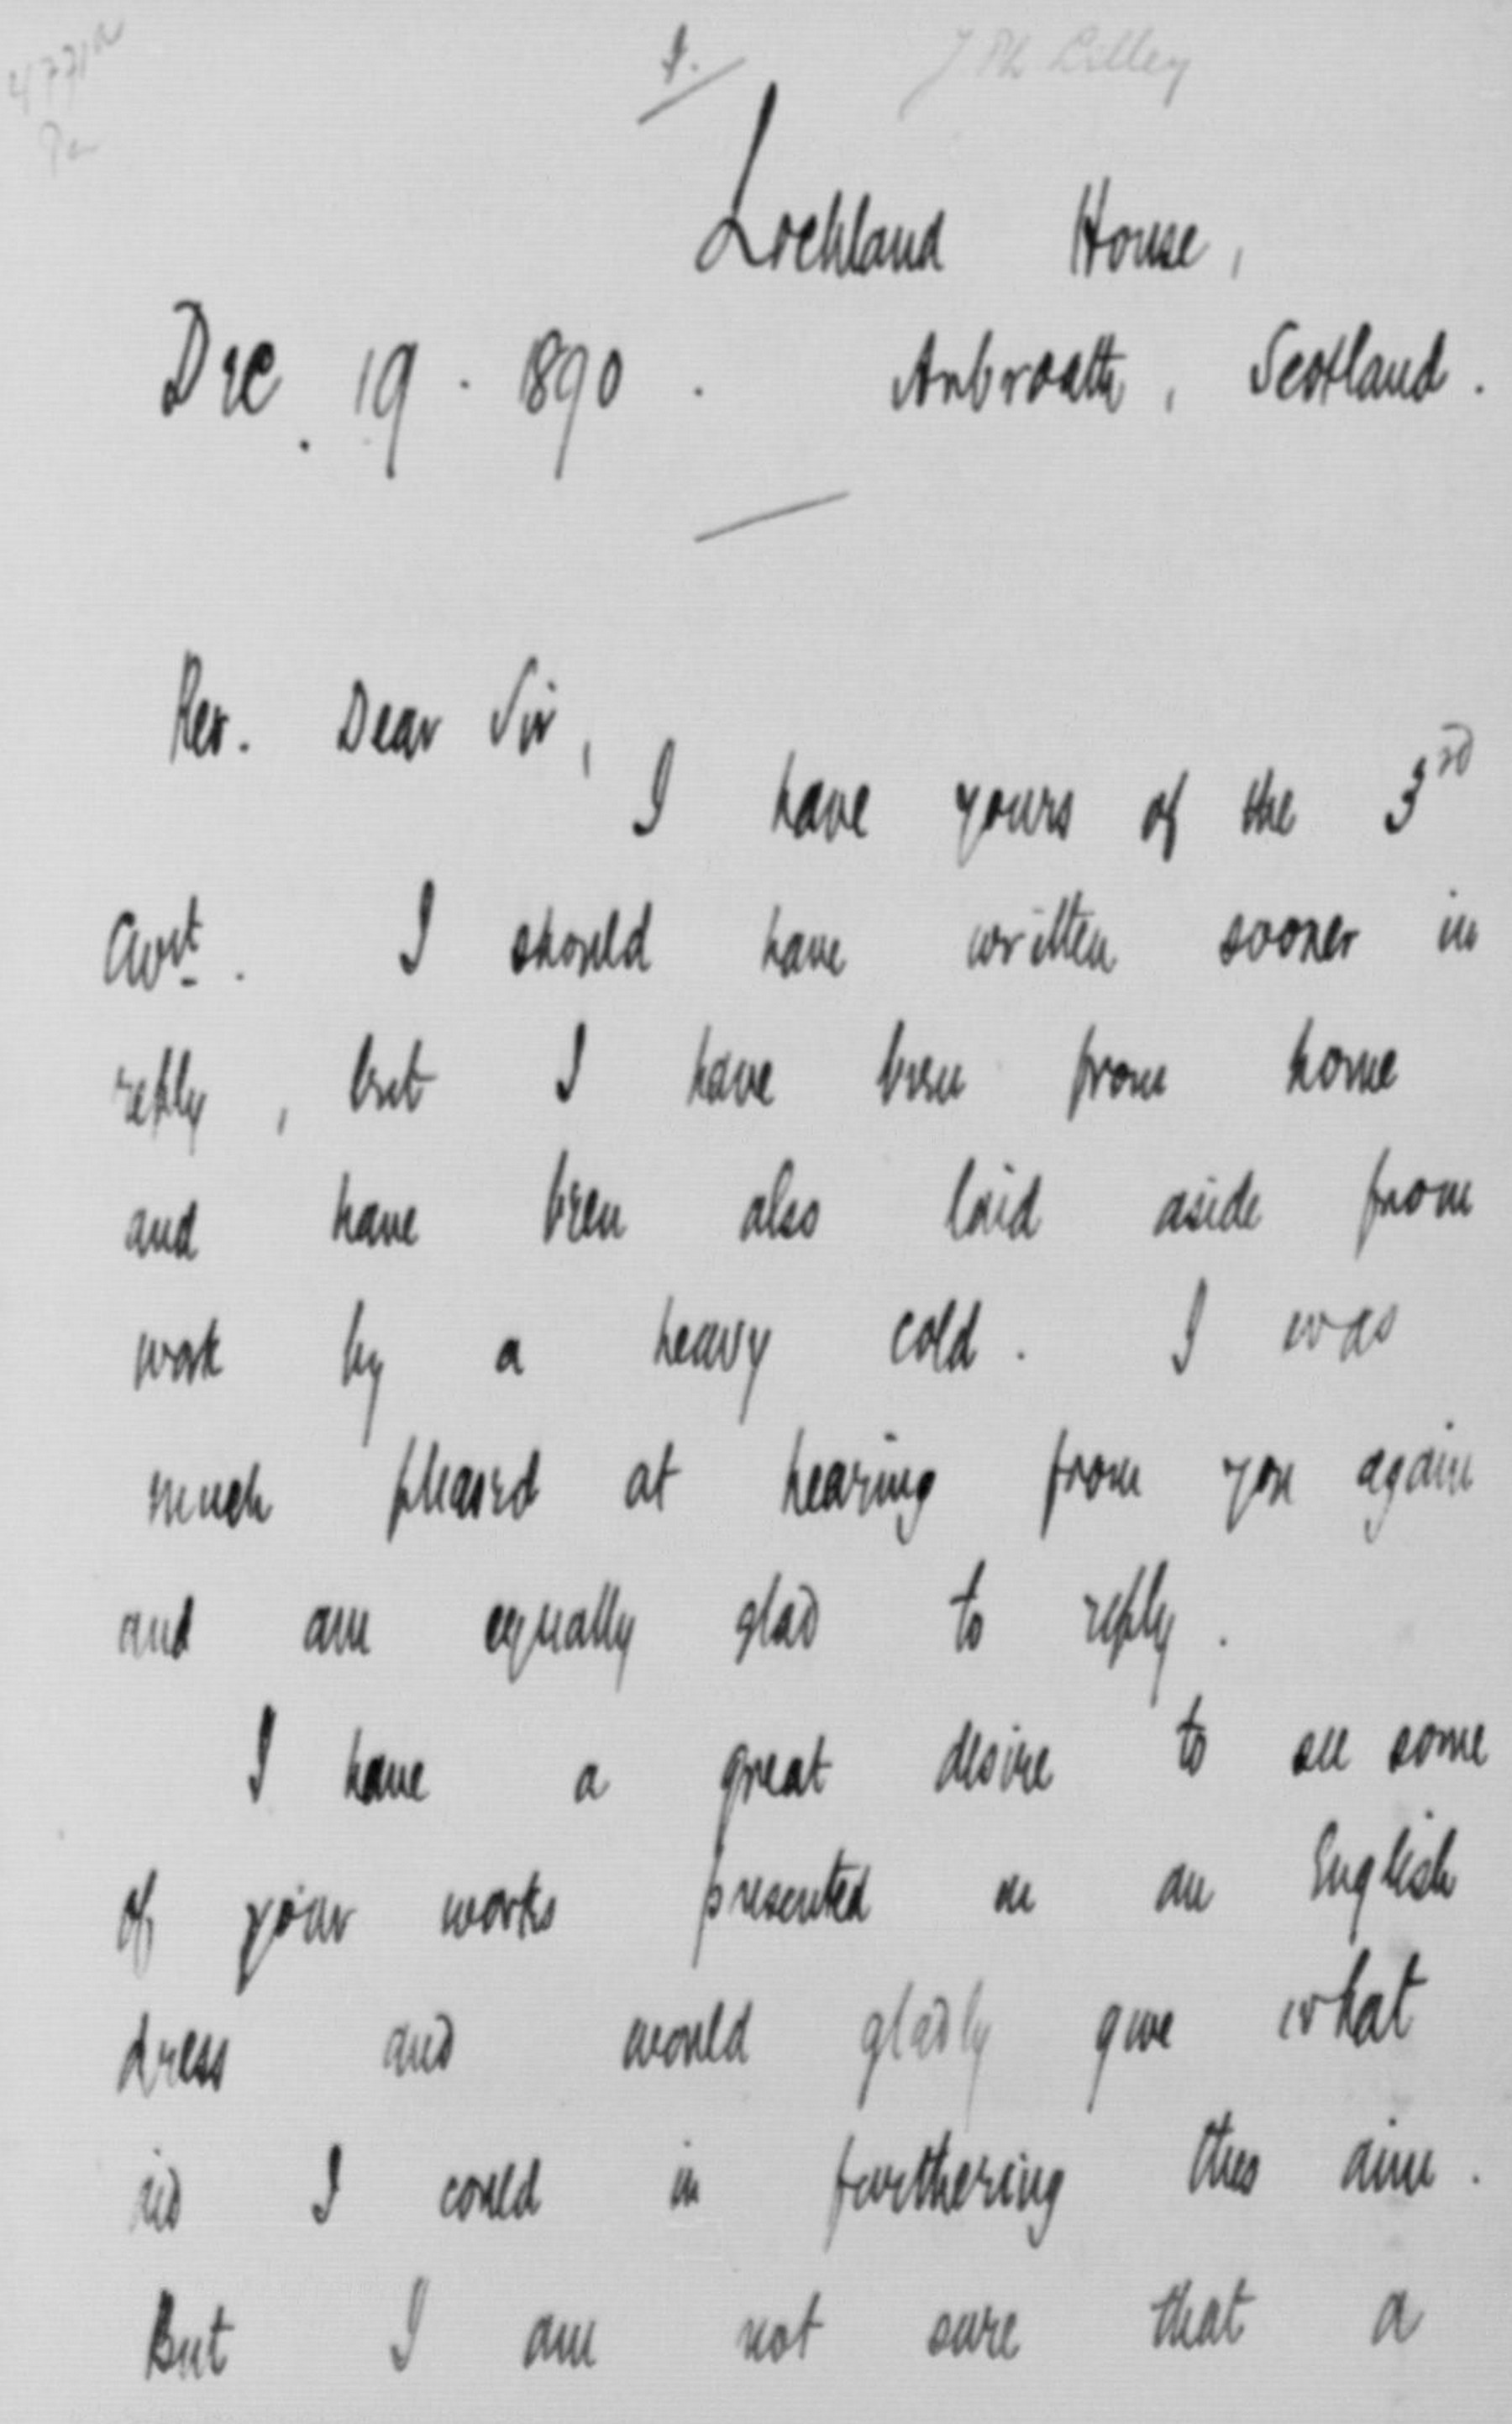 1.
J Ph Lilley
Lochland House,
Dec. 19. 1890. Arbroath, Scotland.
Rev. Dear Sir,
I have yours of the 3rd
Curt. I should have written sooner in
reply, but I have been from home
and have been also laid aside from
work by a heavy cold. I was
much pleased at hearing from you again
and am equally glad to reply.
I have a great desire to see some
of your works presented in an English
dress and would gladly give what
aid I could in furthering this aim.
But I am not sure that a